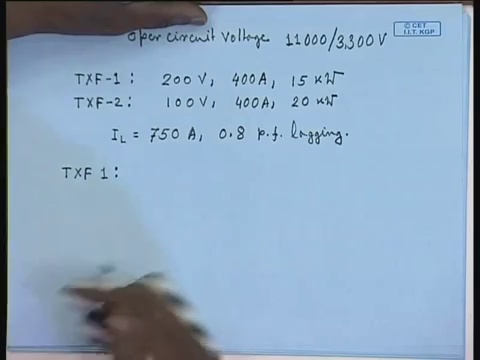 Open circuit Voltage 11000/3,300V
© CET
I.I.T. KGP
TXF-1: 200 V, 400A, 15 KW
TXF-2: 100 V, 400A, 20 KW
IL = 750 A, 0.8 p.f. lagging.
TXF 1: